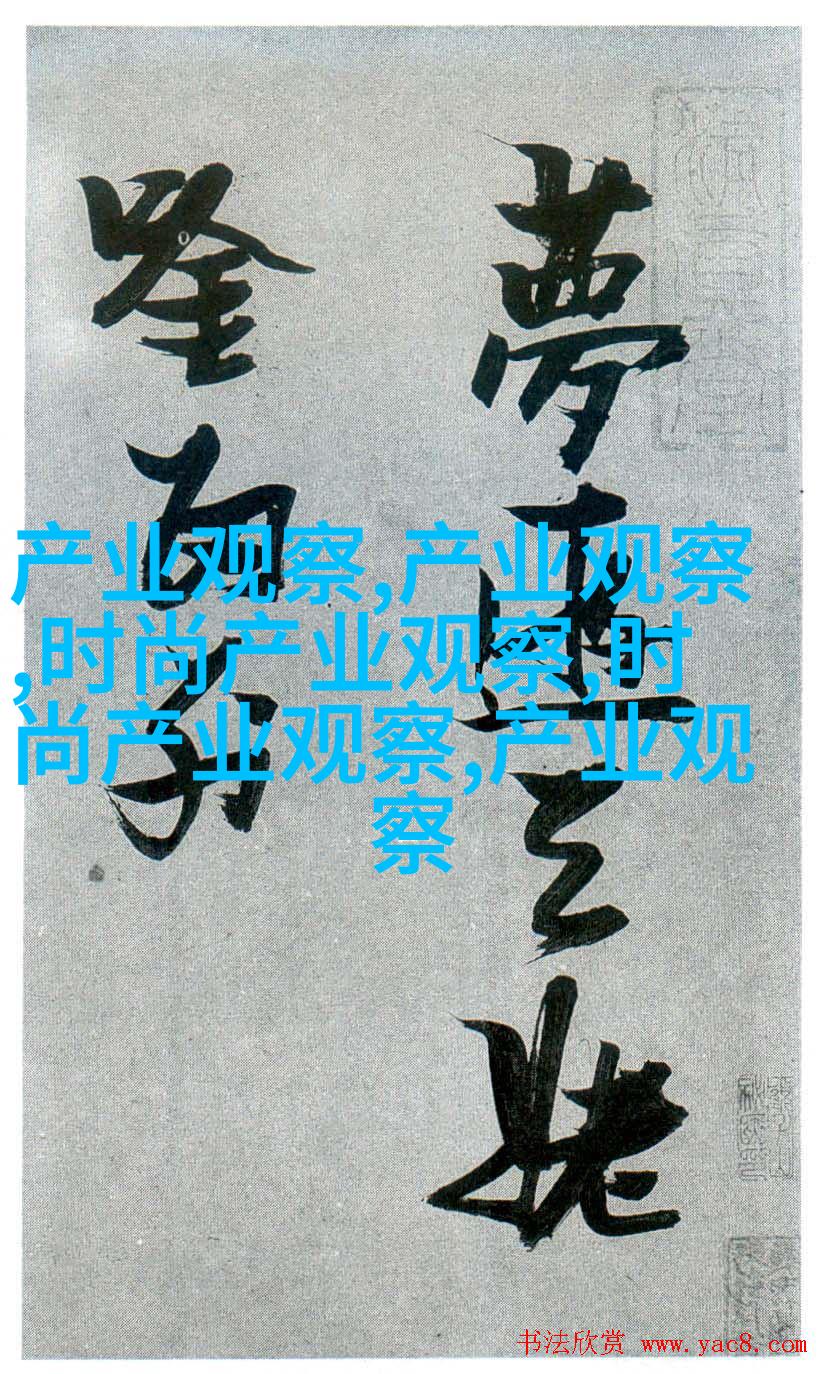 夢遊天姥
唫留别
产业观察,产业观察
,时尚产业观察,时
尚产业观察,产业观
察
书法欣赏 www.yac8.com